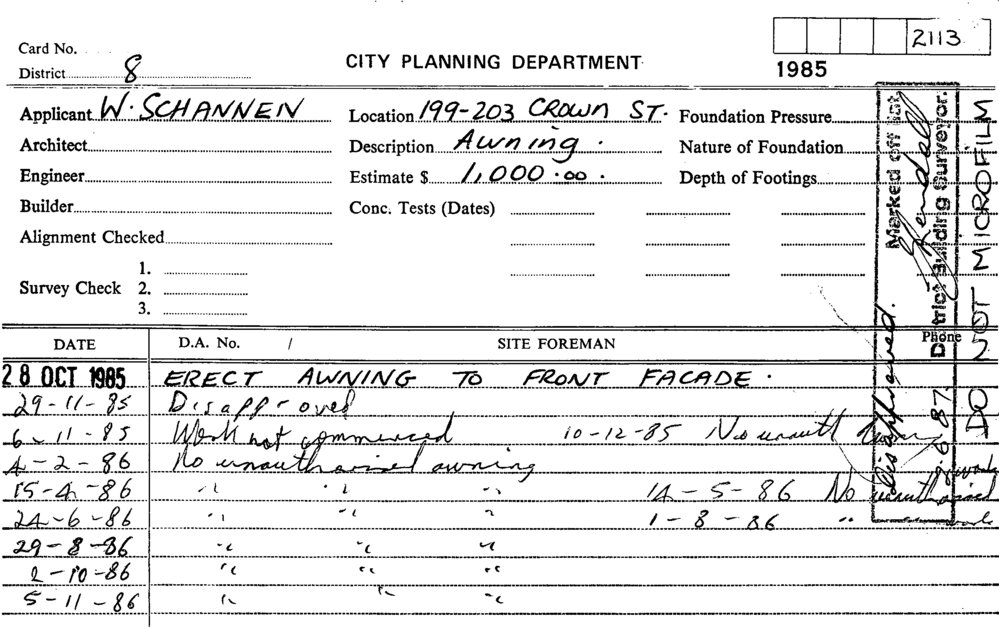 2113
Card No.
District 8
CITY PLANNING DEPARTMENT
1985
Applicant W. SCHANNEN
Location 199-203 CROWN ST.
Foundation Pressure
Architect
Description Awning.
Nature of Foundation
Engineer
Estimate $ 1,000.00.
Depth of Footings
Builder
Conc. Tests (Dates)
Alignment Checked
Survey Check
1.
2.
3.
Disapproved. Marked off list
2.6.87. District Building Surveyor.
DO NOT MICROFILM
DATE D.A. No. / SITE FOREMAN Phone
28 OCT 1985 ERECT AWNING TO FRONT FACADE.
29-11-85 Disapproved
6-11-85 Work not commenced 10-12-85 No unauth
4-2-86 No unauthorised awning
15-4-86 " " " 14-5-86 No unauthorised works
24-6-86 " " " 1-8-86 " works
29-8-86 " " "
2-10-86 " " "
5-11-86 " " "